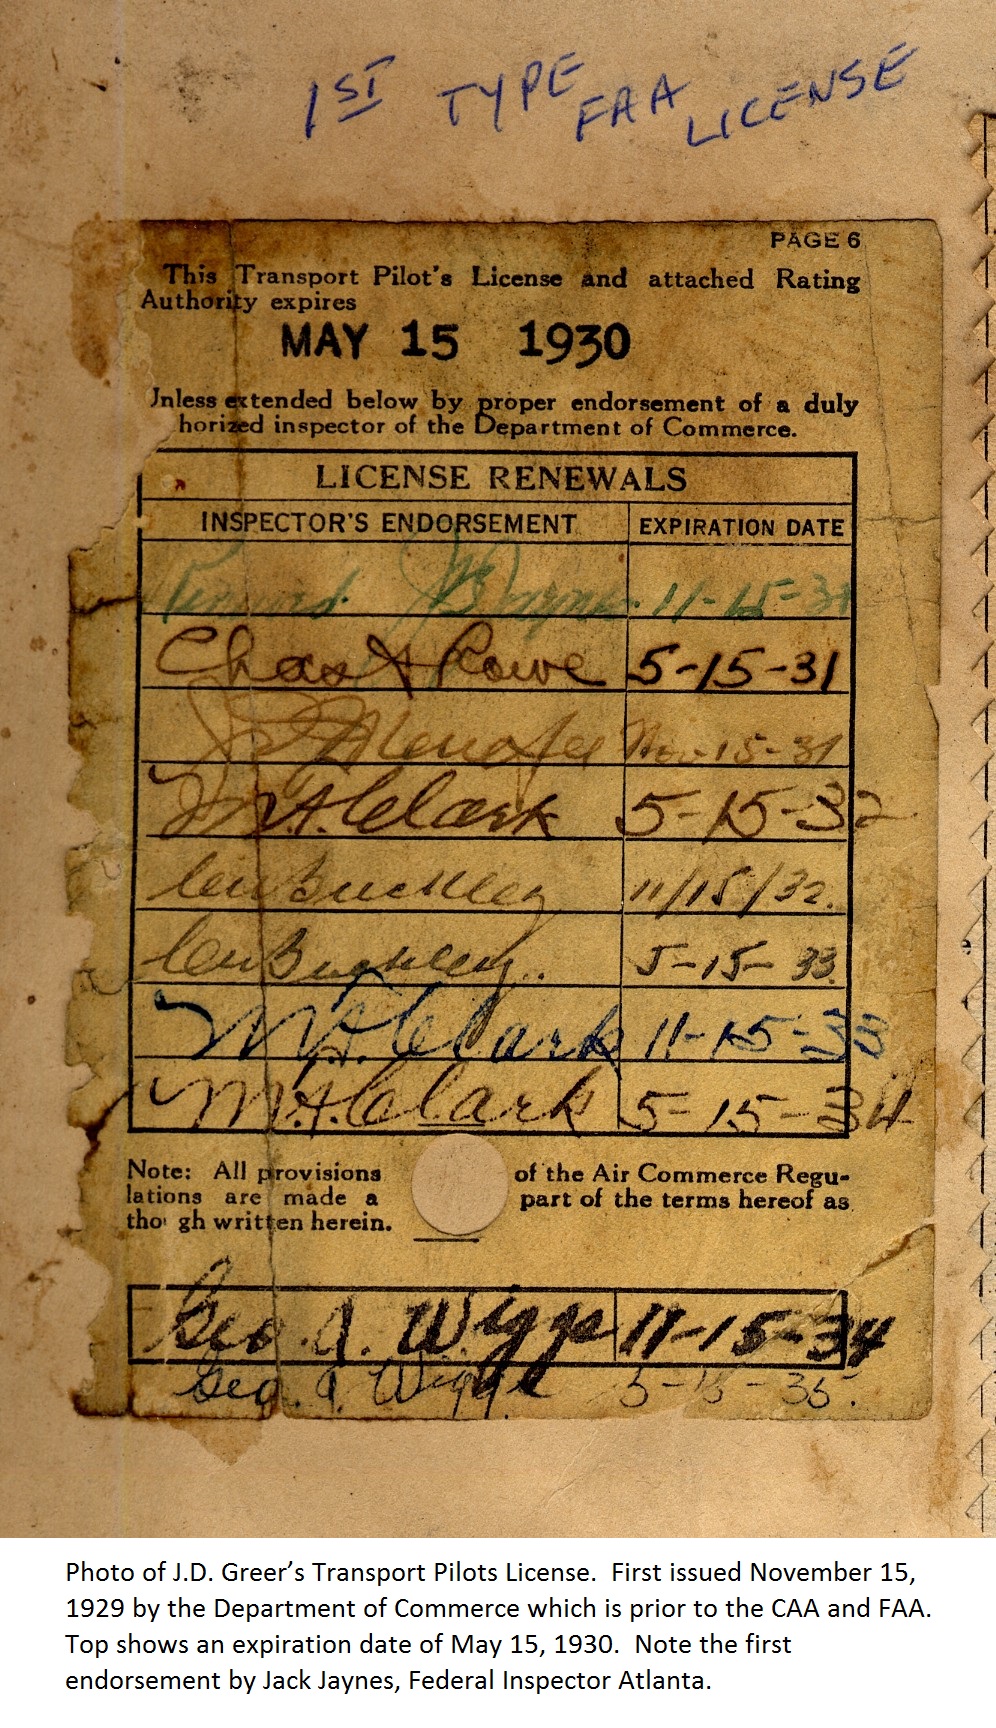 1ST TYPE FAA LICENSE
PAGE 6
This Transport Pilot's License and attached Rating
Authority expires
MAY 15 1930
Unless extended below by proper endorsement of a duly
horized inspector of the Department of Commerce.
LICENSE RENEWALS
INSPECTOR'S ENDORSEMENT EXPIRATION DATE
11-15-30
Chas A Rowe 5-15-31
Nov-15-31
M.A. Clark 5-15-32
Buckley 11/15/32.
Buckley 5-15-33
M.A. Clark 11-15-33
M.A. Clark 5-15-34
Note: All provisions of the Air Commerce Regu-
lations are made a part of the terms hereof as
tho gh written herein.
Geo. A. Wiggs 11-15-34
Geo. A. Wiggs 5-15-35.
Photo of J.D. Greer's Transport Pilots License. First issued November 15,
1929 by the Department of Commerce which is prior to the CAA and FAA.
Top shows an expiration date of May 15, 1930. Note the first
endorsement by Jack Jaynes, Federal Inspector Atlanta.